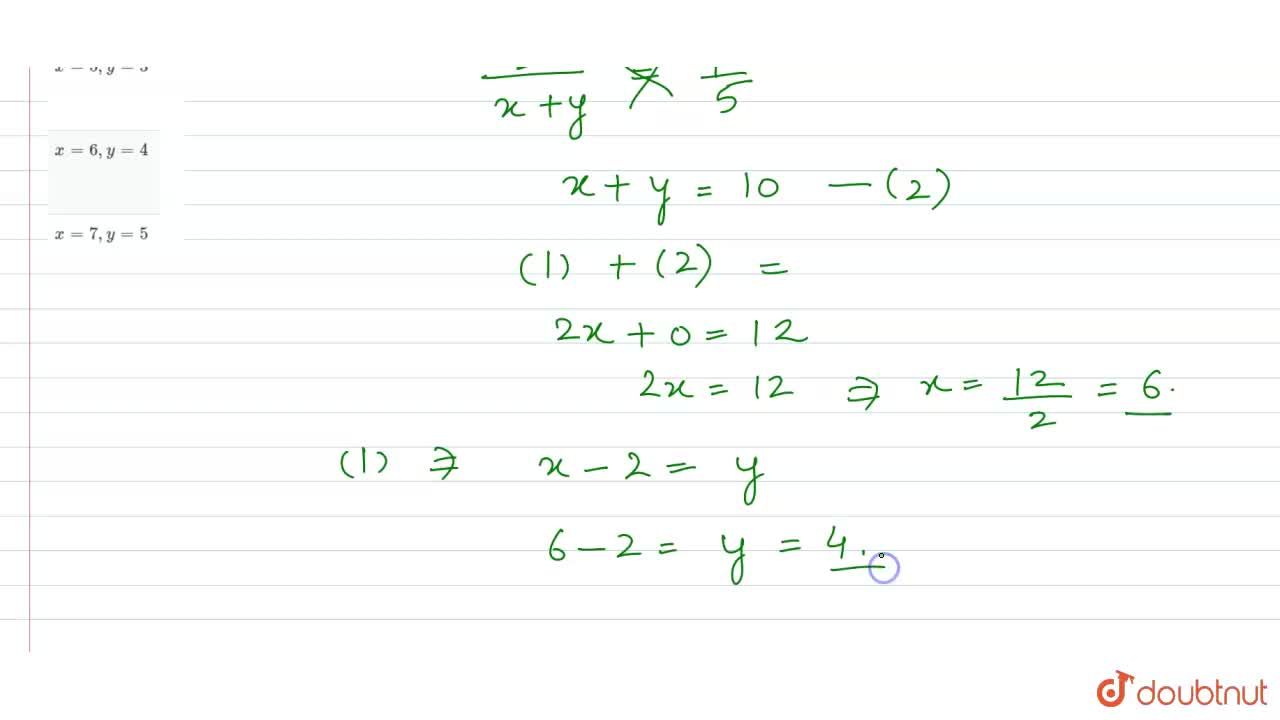 x = 6, y = 4
x = 7, y = 5
x + y 5
x + y = 10 — (2)
(1) + (2) =
2x + 0 = 12
2x = 12 ⇒ x = 12/2 = 6.
(1) ⇒ x − 2 = y
6 − 2 = y = 4.
doubtnut